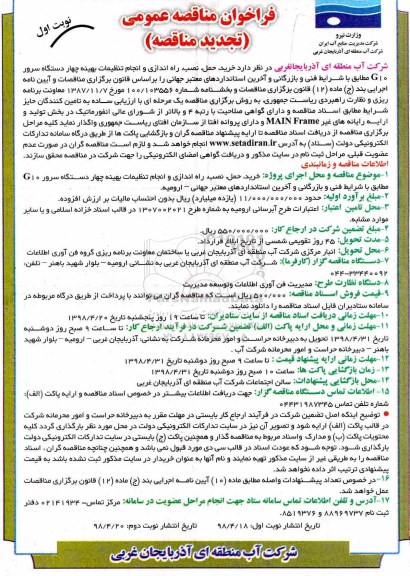 وزارت نیرو
شرکت مدیریت منابع آب ایران
شرکت آب منطقه ای آذربایجان غربی
فراخوان مناقصه عمومی
(تجدید مناقصه)
نوبت اول
شرکت آب منطقه ای آذربایجانغربی در نظر دارد خرید، حمل، نصب، راه اندازی و انجام تنظیمات بهینه چهار دستگاه سرور
G10 مطابق با شرایط فنی و بازرگانی و آخرین استانداردهای معتبر جهانی را براساس قانون برگزاری مناقصات و آیین نامه
اجرایی بند (ج) ماده (۱۲) قانون برگزاری مناقصات و بخشنامه شماره ۱۰۰/۱۰۳۵۵۶ مورخ ۱۳۸۷/۱۱/۷ معاونت برنامه
ریزی و نظارت راهبردی ریاست جمهوری، به روش برگزاری مناقصه یک مرحله ای با ارزیابی ساده به تامین کنندگان حایز
شرایط مطابق اسناد مناقصه و دارای گواهی صلاحیت با رتبه ۴ و بالاتر از شورای عالی انفورماتیک در بخش تولید و
ارایه رایانه های غیر MAIN Frame و دارای پروانه افتا از سازمان افتای ریاست جمهوری واگذار نماید کلیه مراحل
برگزاری مناقصه از دریافت اسناد مناقصه تا ارایه پیشنهاد مناقصه گران و بازگشایی پاکت ها از طریق درگاه سامانه تدارکات
الکترونیکی دولت (ستاد) به آدرس www.setadiran.ir انجام خواهد شد و لازم است مناقصه گران در صورت عدم
عضویت قبلی، مراحل ثبت نام در سایت مذکور و دریافت گواهی امضای الکترونیکی را جهت شرکت در مناقصه محقق سازند.
اطلاعات مناقصه و زمانبندی
۱-موضوع مناقصه و محل اجرای پروژه: خرید، حمل، نصب، راه اندازی و انجام تنظیمات بهینه چهار دستگاه سرور G10
مطابق با شرایط فنی و بازرگانی و آخرین استانداردهای معتبر جهانی - ارومیه.
۲-مبلغ برآورد اولیه: حدود ۱۱/۰۰۰/۰۰۰/۰۰۰ (یازده میلیارد) ریال بدون احتساب مالیات بر ارزش افزوده.
۳-محل تامین اعتبار: اعتبارات طرح آبرسانی ارومیه به شماره طرح ۱۳۰۷۰۰۲۰۲۱ در قالب اسناد خزانه اسلامی و یا سایر
موارد مشابه.
۴-مبلغ تضمین شرکت در ارجاع کار: ۵۵۰/۰۰۰/۰۰۰ ریال.
۵-مدت تحویل: ۴۵ روز تقویمی شمسی از تاریخ ابلاغ قرارداد.
۶-محل تحویل: انبار مرکزی شرکت آب منطقه ای آذربایجان غربی یا ساختمان معاونت برنامه ریزی گروه فن آوری اطلاعات
۷-دستگاه مناقصه گزار (کارفرما): شرکت آب منطقه ای آذربایجان غربی به نشانی ارومیه - بلوار شهید باهنر - تلفن:
۰۴۴-۳۳۴۴۰۰۹۲
۸-دستگاه نظارت طرح: مدیریت فن آوری اطلاعات وتوسعه مدیریت
۹-قیمت فروش اسناد مناقصه: ۵۰۰/۰۰۰ ریال است که مناقصه گران می توانند با پرداخت از طریق درگاه مربوطه در
سامانه ستادیران فایل اسناد مناقصه را دانلود نمایند.
۱۰-مهلت زمانی دریافت اسناد مناقصه از سایت ستادیران: تا ساعت ۱۹ روز پنجشنبه تاریخ ۱۳۹۸/۴/۲۰
۱۱-مهلت زمانی و محل ارایه پاکت (الف) تضمین شرکت در فرآیند ارجاع کار: تا ساعت ۹ صبح روز دوشنبه
تاریخ ۱۳۹۸/۴/۳۱ تحویل به دبیرخانه حراست و امور محرمانه شرکت به نشانی: آذربایجان غربی - ارومیه - بلوار شهید
باهنر - دبیرخانه حراست و امور محرمانه شرکت آب.
۱۲-مهلت زمانی ارایه پیشنهاد قیمت: تا ساعت ۹ صبح روز دوشنبه تاریخ ۱۳۹۸/۴/۳۱
۱۳-زمان بازگشایی پاکت ها: ساعت ۱۰ صبح روز دوشنبه تاریخ ۱۳۹۸/۴/۳۱
۱۴-محل بازگشایی پیشنهادات: سالن اجتماعات شرکت آب منطقه ای آذربایجان غربی
۱۵- اطلاعات تماس دستگاه مناقصه گزار: جهت دریافت اطلاعات بیشتر در خصوص اسناد مناقصه و ارایه پاکت (الف):
شماره تلفن تماس ۰۴۴۳۱۹۸۷۳۴۵
توضیح اینکه اصل تضمین شرکت در فرآیند ارجاع کار بایستی در مهلت مقرر به دبیرخانه حراست و امور محرمانه شرکت
در قالب پاکت (الف) ارایه شود و تصویر آن نیز در سایت تدارکات الکترونیکی دولت در محل مورد نظر بارگذاری گردد کلیه
محتویات پاکت (ب) و مدارک واسناد مربوط به مناقصه گذار و همچنین پاکت (ج) بایستی در سایت تدارکات الکترونیکی دولت
بارگذاری شود. توجه شود که عودت اسناد در قالب سی دی مورد قبول نمی باشد و همچنین چنانچه مناقصه گران، اسناد
مناقصه را به طریقی غیر از سایت مذکور تهیه نمایند و نام آنها به عنوان خریدار در سایت مذکور ثبت نشده باشد به قیمت
پیشنهادی ترتیب اثر داده نخواهد شد.
۱۶-در خصوص تعداد پیشنهادات واصله مطابق ماده (۱۰) آیین نامه اجرایی بند (ج) ماده (۱۲) قانون برگزاری مناقصات
عمل خواهد شد.
۱۷-آدرس و تلفن اطلاعات تماس سامانه ستاد جهت انجام مراحل عضویت در سامانه: مرکز تماس- ۰۲۱۴۱۹۳۴ دفتر
ثبت نام ۸۸۹۶۹۷۳۷ و ۸۵۱۹۳۷۶۸.
تاریخ انتشار نوبت اول: ۹۸/۴/۱۸
تاریخ انتشار نوبت دوم: ۹۸/۴/۲۰
شرکت آب منطقه ای آذربایجان غربی